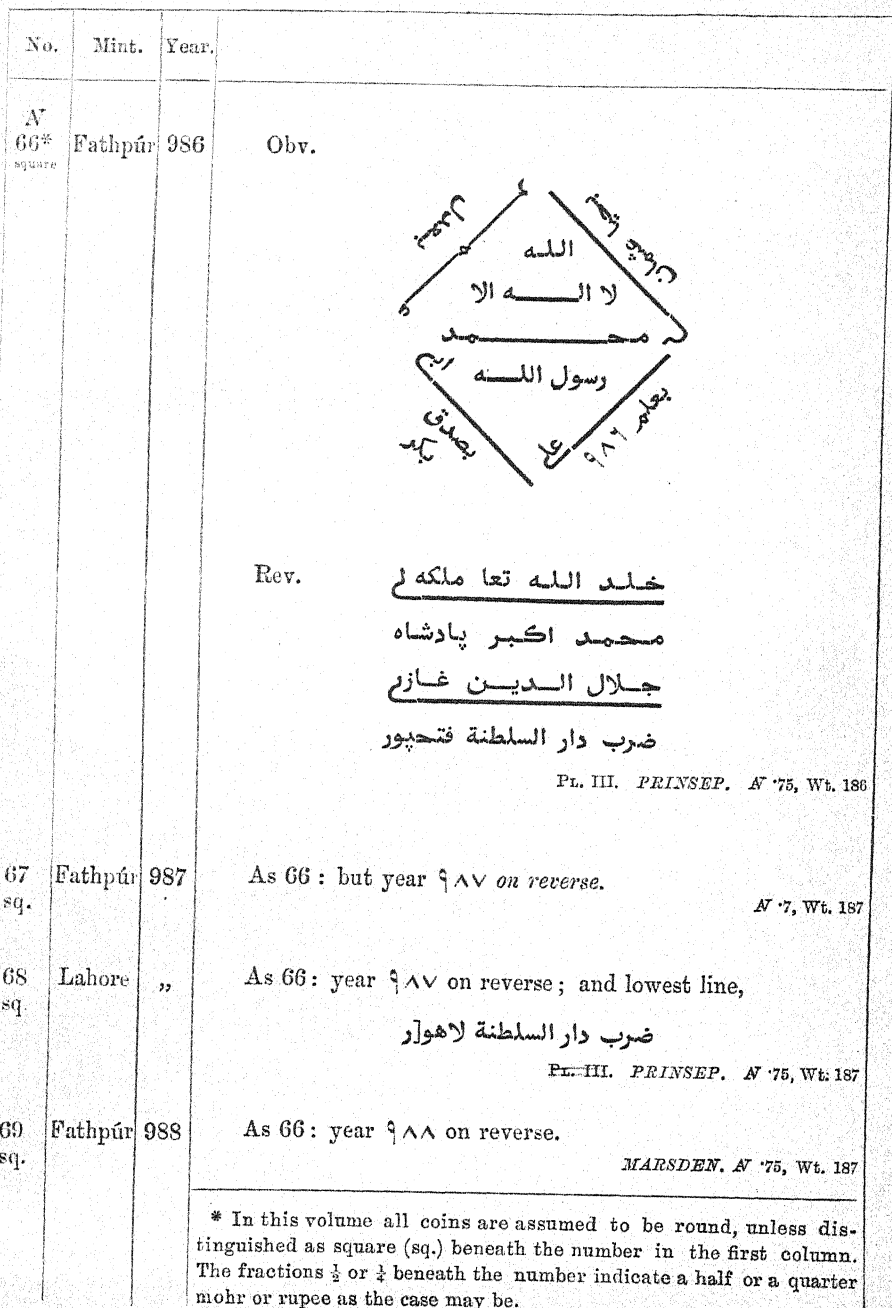 No. Mint. Year.
N
66* Fathpúr 986 Obv.
square
بعدل عمر
بحيا عثمان
الله
لا الـــــه الا
محـــــــمد
رسول اللـــه
ابى
بصدق
بكر
بعلم ٩٨٦
على
Rev. خلد الله تعا ملكه لى
محمد اكبر پادشاه
جلال الديـن غازى
ضرب دار السلطنة فتحپور
Pl. III. PRINSEP. N ·75, Wt. 186
67 Fathpúr 987 As 66 : but year ٩٨٧ on reverse.
sq. N ·7, Wt. 187
68 Lahore „ As 66 : year ٩٨٧ on reverse ; and lowest line,
sq.
ضرب دار السلطنة لاهو[ر
Pl. III. PRINSEP. N ·75, Wt. 187
69 Fathpúr 988 As 66 : year ٩٨٨ on reverse.
sq. MARSDEN. N ·75, Wt. 187
* In this volume all coins are assumed to be round, unless dis-
tinguished as square (sq.) beneath the number in the first column.
The fractions ½ or ¼ beneath the number indicate a half or a quarter
mohr or rupee as the case may be.